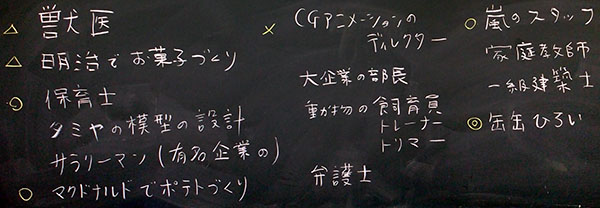 △ 獣医
△ 明治でお菓子づくり
○ 保育士
タミヤの模型の設計
サラリーマン(有名企業の)
○ マクドナルドでポテトづくり
× CGアニメーションの
ディレクター
大企業の部長
動物の飼育員
トレーナー
トリマー
弁護士
○ 嵐のスタッフ
家庭教師
一級建築士
◎ 缶缶ひろい